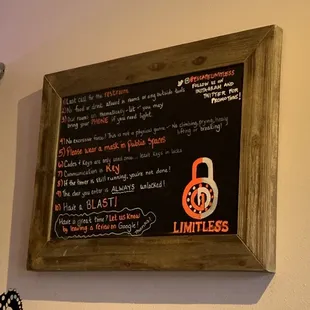 @ESCAPELIMITLESS
FOLLOW US ON
INSTAGRAM AND
TWITTER FOR
PROMOTIONS!
1) Last call for the restroom
2) No food or drink allowed
bring your PHONE if you need light.
4) No excessive force! This is not a physical game - No climbing, prying, heavy
lifting or breaking!
5) Please wear a mask in Public Spaces!
6) Codes & Keys are only used once... leave keys in locks
7) Communication is Key
8) If the timer is still running, you're not done!
9) The door you enter is ALWAYS unlocked!
10) Have a BLAST!
Have a great time? Let us know
by leaving a review on Google!
LIMITLESS